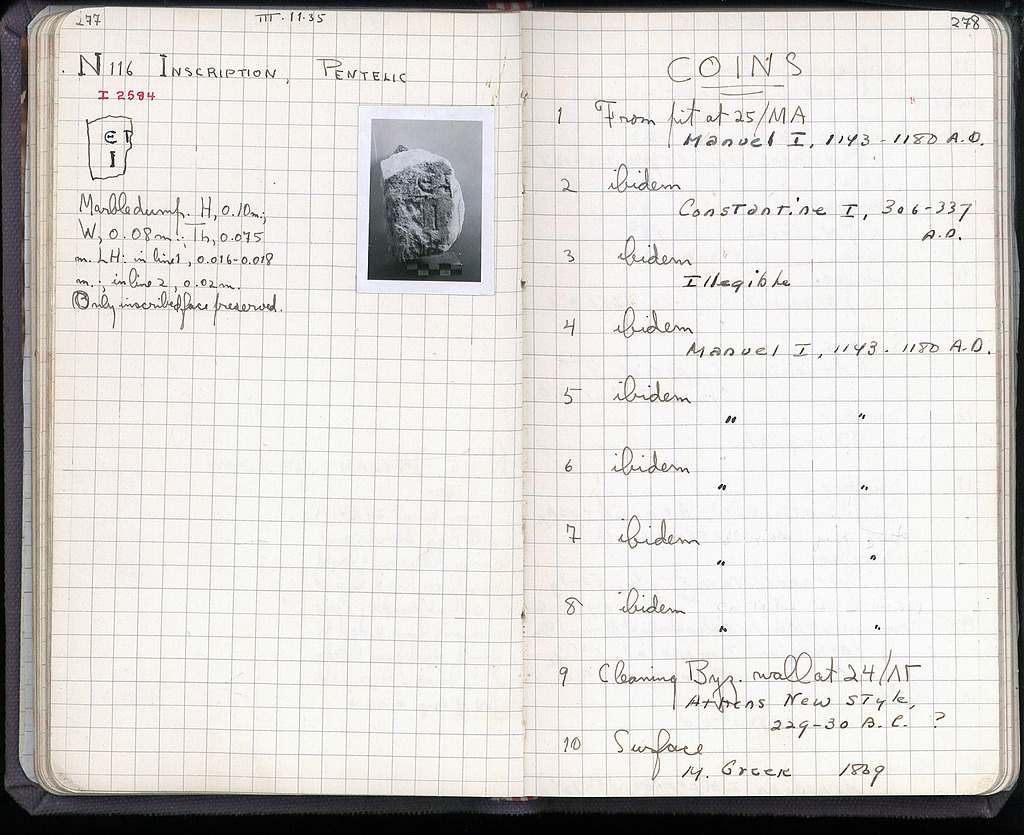 277
III·11·35
N 116 INSCRIPTION, PENTELIC
I 2584
ЄT
I
Marble dump. H, 0.10m;
W, 0.08m.; Th, 0.075
m. LH: in line 1, 0.016-0.018
m.; in line 2, 0.02m.
Only inscribed face preserved.
278
COINS
1 From pit at 25/MA
Manuel I, 1143-1180 A.D.
2 ibidem
Constantine I, 306-337
A.D.
3 ibidem
Illegible
4 ibidem
Manuel I, 1143-1180 A.D.
5 ibidem
" "
6 ibidem
" "
7 ibidem
" "
8 ibidem
" "
9 Cleaning Byz. wall at 24/ΛΓ
Athens New Style,
229-30 B.C. ?
10 Surface
M. Greek 1869